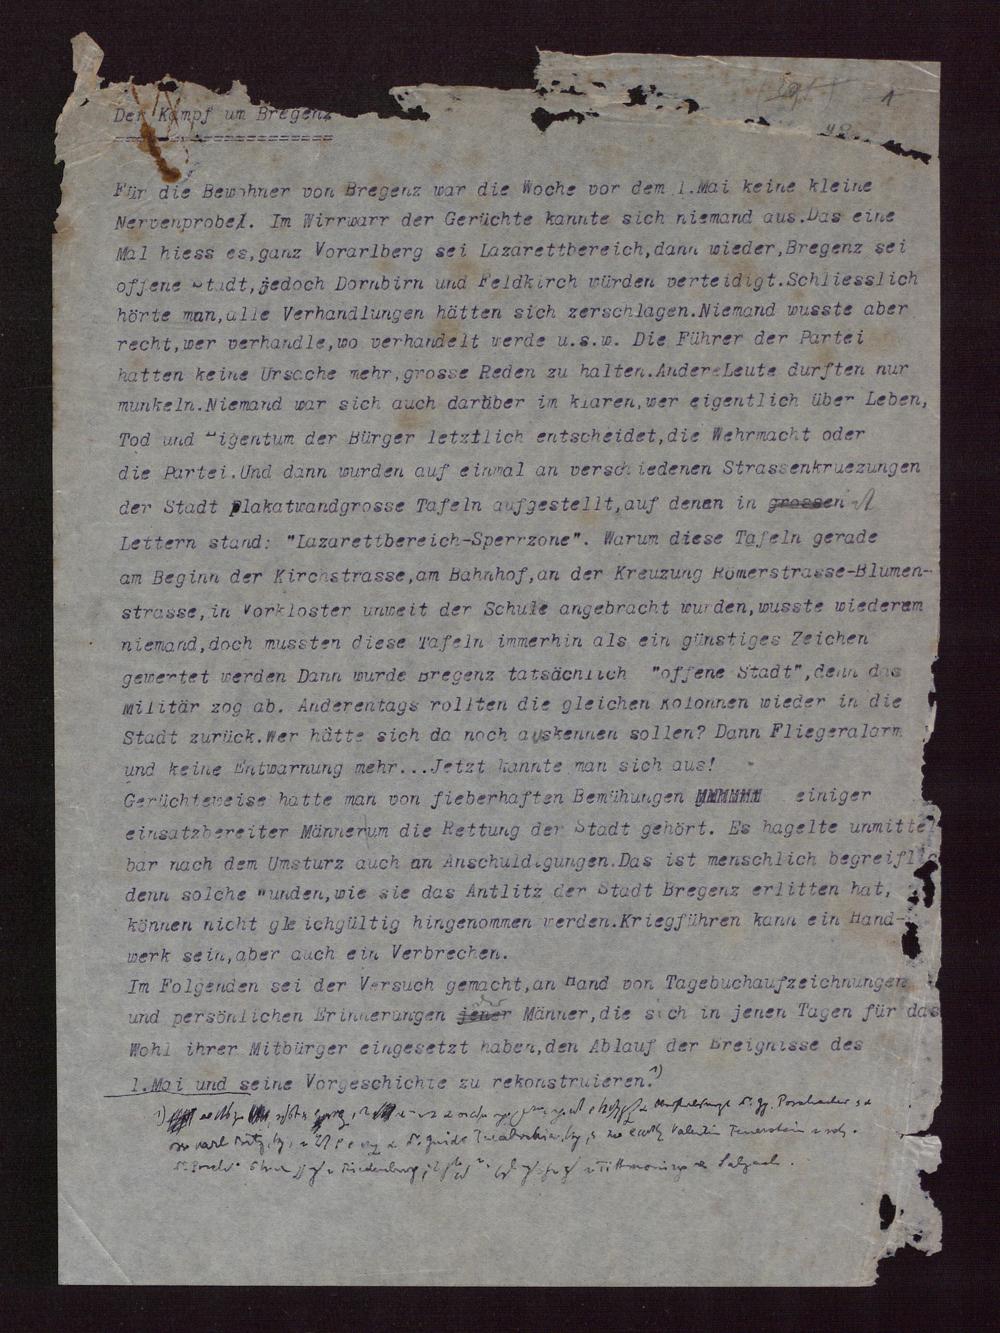 1
Der Kampf um Bregenz
Für die Bewohner von Bregenz war die Woche vor dem 1.Mai keine kleine
Nervenprobe!. Im Wirrwarr der Gerüchte kannte sich niemand aus.Das eine
Mal hiess es,ganz Vorarlberg sei Lazarettbereich,dann wieder,Bregenz sei
offene Stadt,jedoch Dornbirn und Feldkirch würden verteidigt.Schliesslich
hörte man,alle Verhandlungen hätten sich zerschlagen.Niemand wusste aber
recht,wer verhandle,wo verhandelt werde u.s.w. Die Führer der Partei
hatten keine Ursache mehr,grosse Reden zu halten.Andere Leute durften nur
munkeln.Niemand war sich auch darüber im klaren,wer eigentlich über Leben,
Tod und Eigentum der Bürger letztlich entscheidet,die Wehrmacht oder
die Partei.Und dann wurden auf einmal an verschiedenen Strassenkruezungen
der Stadt plakatwandgrosse Tafeln aufgestellt,auf denen in grossen
Lettern stand: "Lazarettbereich-Sperrzone". Warum diese Tafeln gerade
am Beginn der Kirchstrasse,am Bahnhof,an der Kreuzung Römerstrasse-Blumen-
strasse,in Vorkloster unweit der Schule angebracht wurden,wusste wiederum
niemand,doch mussten diese Tafeln immerhin als ein günstiges Zeichen
gewertet werden Dann wurde Bregenz tatsächlich "offene Stadt",denn das
Militär zog ab. Anderentags rollten die gleichen Kolonnen wieder in die
Stadt zurück.Wer hätte sich da noch auskennen sollen? Dann Fliegeralarm
und keine Entwarnung mehr...Jetzt kannte man sich aus!
Gerüchteweise hatte man von fieberhaften Bemühungen einiger
einsatzbereiter Männer um die Rettung der Stadt gehört. Es hagelte unmittel
bar nach dem Umsturz auch an Anschuldigungen.Das ist menschlich begreiflic
denn solche Wunden,wie sie das Antlitz der Stadt Bregenz erlitten hat,
können nicht gleichgültig hingenommen werden.Kriegführen kann ein Hand-
werk sein,aber auch ein Verbrechen.
Im Folgenden sei der Versuch gemacht,an Hand von Tagebuchaufzeichnungen
und persönlichen Erinnerungen jener Männer,die sich in jenen Tagen für das
Wohl ihrer Mitbürger eingesetzt haben,den Ablauf der Ereignisse des
1.Mai und seine Vorgeschichte zu rekonstruieren.1)
1)
Valentin Feuerstein
Riedenburg Tittmoning Salzach.